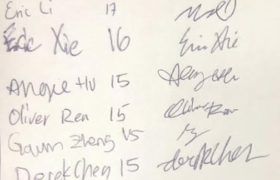 Eric Li 17
Eric Xie 16 Eric Xie
Angie Hu 15
Oliver Ren 15 Oliver Ren
Gavin Zheng 15
Derek Chen 15 Derek Chen